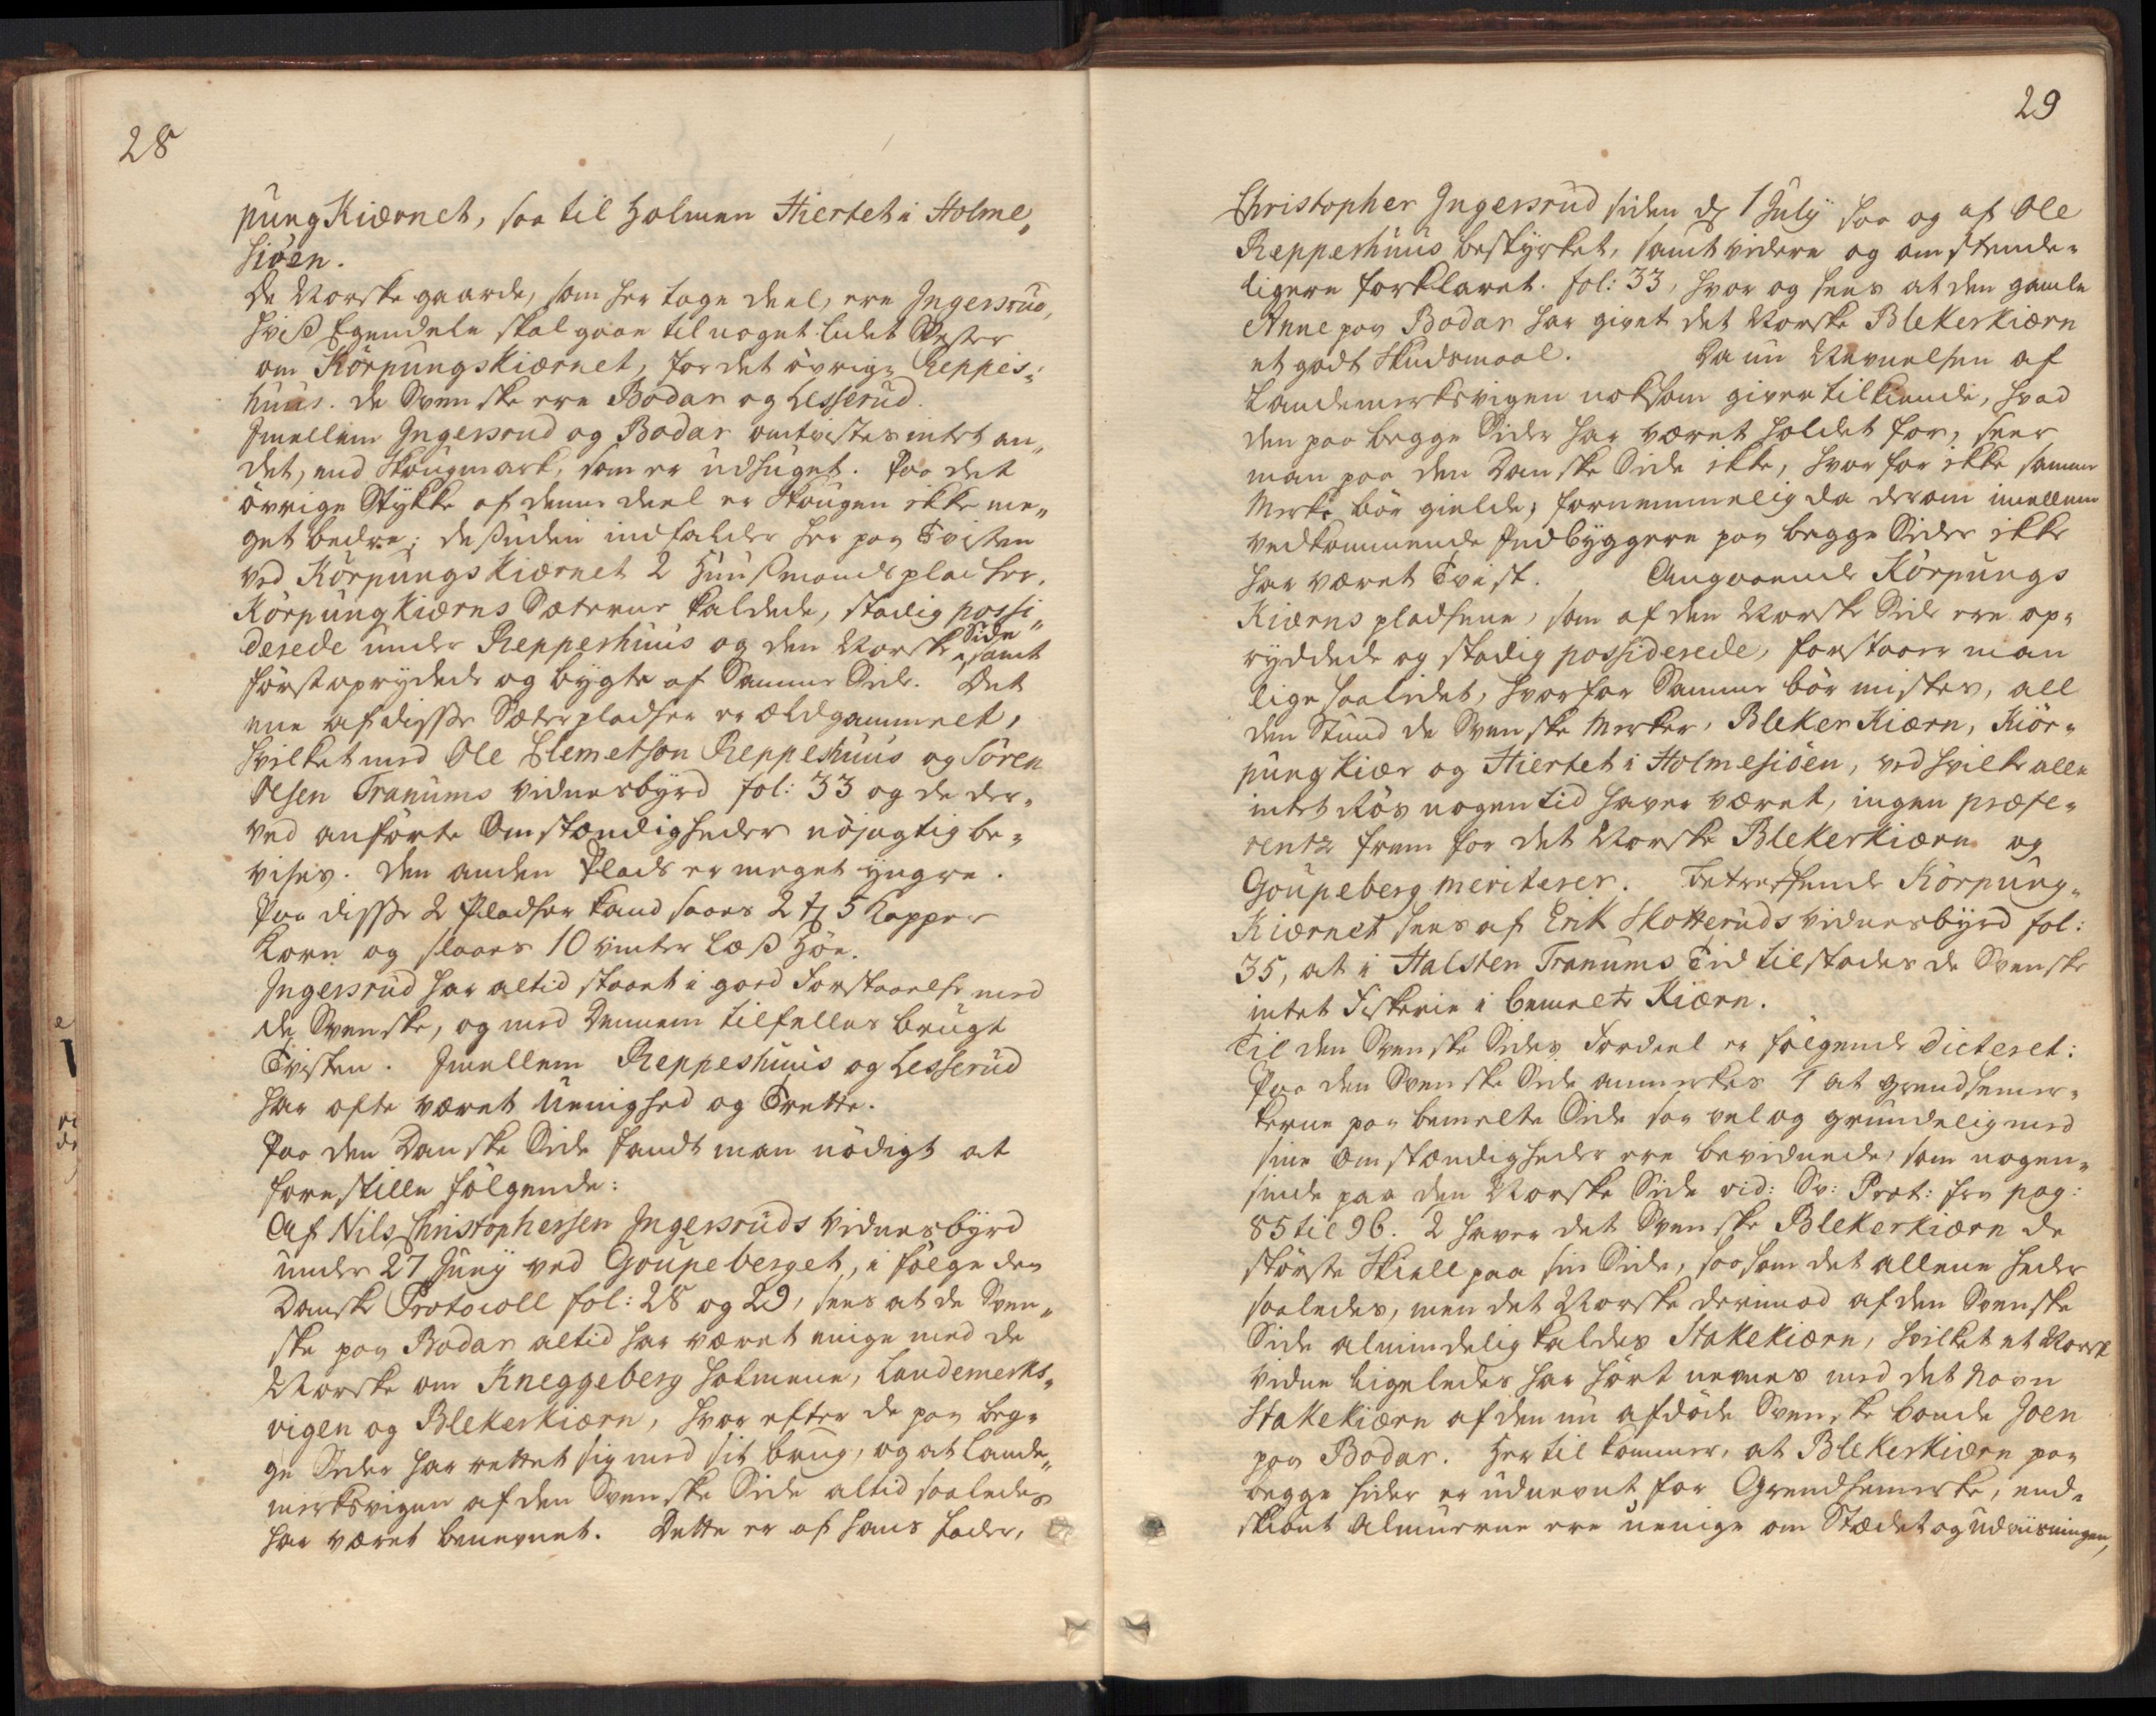 28
pungKiærnet, saa til Holmen Hiertet i Holme„
siöen.
De Norske gaarde, som her tage Deel, ere Ingersrud,
hviß Egendeele skal gaae til noget lidet Vester
om Körpungskiærnet, for det övrige Reppes„
huus. De Svenske ere Bodar og Lesserud.
Imellem Ingersrud og Bodar omtvistes intet an„
det, end Skougmark, som er udhuget. Paa det
övrige Stykke af denne deel er Skougen ikke me„
get bedre; desuden indfalder her paa Tvisten
ved Körpungskiærnet 2 Huusmandspladser,
Körpungkiærns Sæterne kaldede, stadig possi„
derede under Reppershuus og den Norske Side samt
först oprydede og bygte af Samme Side. Det
ene af disse Sæterpladser er ældgammelt,
hvilket med Ole Clemetson Reppeshuus og Sören
Olsen Tranums vidnesbyrd fol: 33 og de der„
ved anförte Omstændigheder nöjagtig be„
vises. Den anden Plads er meget yngre.
Paa disse 2 Pladser kand saaes 2 til 5 Kapper
Korn og slaaes 10 vinter læß Höe.
Ingersrud har altid staaet i goed Forstaaelse med
de Svenske, og med Dennem tilfælles brugt
Tvisten. Imellem Reppeshuus og Lesserud
har ofte været Uenighed og Trette.
Paa den Danske Side fandt man nödigt at
forestille fölgende:
Af Nils Christophersen Ingersruds Vidnesbyrd
under 27 Juny ved Goupeberget, i fölge den
Danske Protocoll fol: 28 og 29, sees at de Sven„
ske paa Bodar altid har været enige med de
Norske om Kneggeberg holmene, Landemerks„
vigen og Blekerkiærn, hvor efter de paa beg„
ge Sider har rettet sig med sit brug, og at Lande„
merksvigen af den Svenske Side altid saaledes
har været benevnet. Dette er af hans fader,
29
Christopher Ingersrud siden d. 1 July saa og af Ole
Reppershuus bestyrket, samt videre og omstende„
ligere forklaret. fol: 33, hvor og sees at den gamle
Anne paa Bodar har givet det Norske Blekerkiærn
et godt Skudsmaal. Da nu Nevnelsen af
Landemerksvigen noksom giver tilkiende, hvad
den paa begge Sider har været holdet for, seer
man paa den Danske Side ikke, hvorfor ikke samme
Merke bör gielde; fornemmelig da derom imellem
vedkommende Indbyggere paa begge Sider ikke
har været Tvist. Angaaende Körpungs
Kiærns pladsene, som af den Norske Side ere op„
ryddede og stadig possiderede, forstaaer man
lige saalidet, hvorfor Samme bör mistes, all
den Stund de Svenske Merker, Bleker Kiærn, Kiör„
pungkiær og Hiertet i Holmesiöen, ved hvilke alle
intet Rös nogen tid haver været, ingen præfe„
rentz frem for det Norske Blekerkiærn og
Goupeberg meriterer. Betreffende Körpung„
Kiærnet sees af Erik Skotteruds vidnesbyrd fol:
35, at i Halsten Tranums Tid tilstodes de Svenske
intet Fiskerie i bemelte Kiærn.
Til den Svenske Sides Fordeel er fölgende dicteret:
Paa den Svenske Side anmerkes 1 at Grendsemer„
kerne paa bemelte Side saa vel og grundelig med
sine Omstændigheder ere bevidnede, som nogen„
sinde paa den Norske Side vid: Sv: Prot: fra pag:
85 til 96. 2 haver det Svenske Blekerkiærn de
störste Skiell paa sin Side, saasom det allene heder
saaledes, men det Norske derimod af den Svenske
Side almindelig kaldes Stakekiærn, hvilket et Norsk
Vidne ligeledes har hört nevnes med det Navn
Stakekiærn af den nu afdöde Svenske bonde Joen
paa Bodar. Hertil kommer, at Blekerkiærn paa
begge sider er udnevnt for Grendsemerke, end„
skiönt Almuerne ere uenige om Stædet og udviisningen,